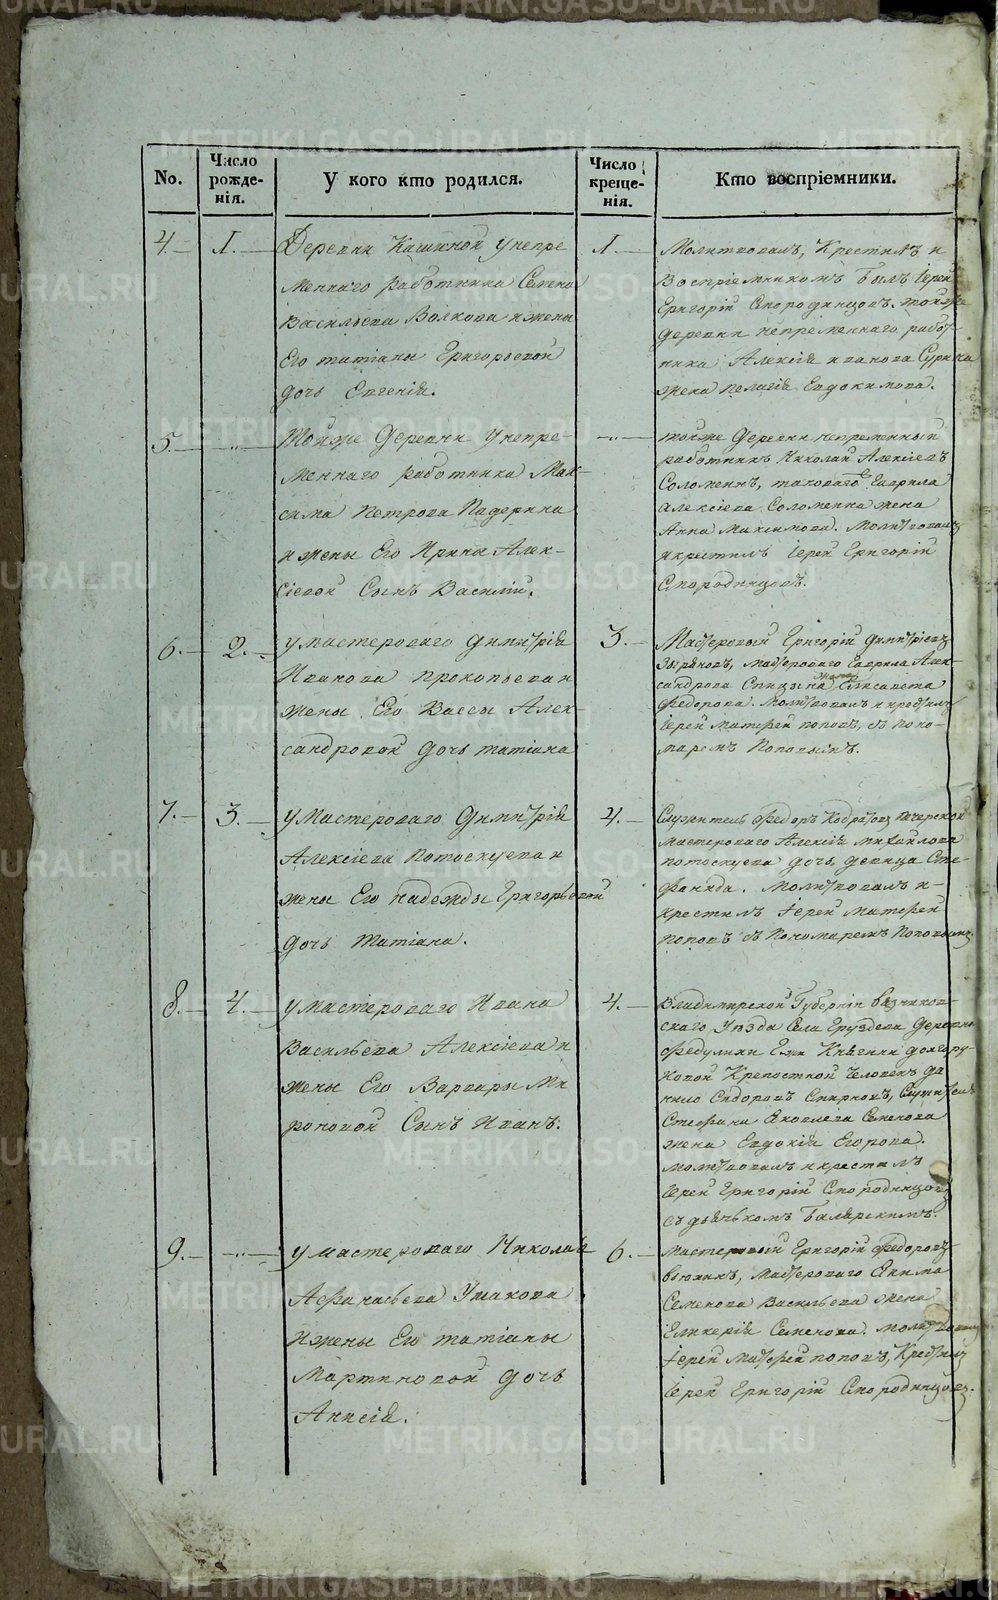 No.
Число рожде-нія.
У кого кто родился.
Число креще-нія.
Кто воспріемники.
4.
1.
Деревни Кашиной у непре
меннаго работника Семена
Васильева Волкова и жены
Его татіаны Григорьевой
дочь Евгенія.
1.
Молитвовалъ, Крестилъ и
Воспріемникомъ былъ Іерей
Григорій Смородинцовъ. тойже
деревни непременнаго работ-
ника Алексія иванова Сурина
жена пелагія Евдокимова.
5.
Тойже деревни у непре-
меннаго работника Мак-
сима Петрова Падерина
и жены Его Ирины Алек-
сіевой Сынъ Василій.
тойже деревни непременный
работникъ Николай Алексіевъ
Соломеинъ, таковаго Гаврила
Алексіева Соломеина жена
Анна Максимова. Молитвовалъ
и крестилъ Іерей Григорій
Смородинцовъ.
6.
2.
у мастероваго димитрія
Иванова прокопьева и
жены Его Вассы Алек-
сандровой дочь татіана
3.
Мастеровый Григорій димитріевъ
Зыряновъ, мастероваго Гаврила Алек-
сандрова Спицына жена Елисавета
федорова. Молитвовалъ и крестилъ
Іерей Матфей поповъ, съ поно-
маремъ Поповымъ.
7.
3.
у Мастероваго димитрія
Алексіева Потоскуева и
жены Его Надежды Григорьевой
дочь Татіана.
4.
Служитель федоръ
мастероваго Алексія михайлова
потоскуева дочь девица Сте-
фанида. Молитвовалъ и
крестилъ Іерей Матфей
поповъ съ пономаремъ Поповымъ.
8.
4.
у мастероваго Ивана
Васильева Алексіева и
жены Его Варвары Ми
роновой Сынъ Иванъ.
4.
Владимирской Губерніи Вязников-
скаго Уезда Села Груздева деревни
федулихи Гжи Княгини долгору-
ковой Крепостной Человекъ да
нило Сидоровъ Смирновъ, служителя
Стефана Яковлева Семенова
жена Евдокія Егорова.
молитвовалъ и крестилъ
Іерей Григорій Смородинцовъ
съ дьячькомъ
9.
у мастероваго Николая
Афанасьева Ушакова
и жены Его татіаны
Мартиновой дочь
Анисія.
6.
Мастеровый Григорій федоровъ
мастероваго Якима
Семенова Васильева жена
Гликерія Семенова. молитвовалъ
Іерей Матфей поповъ, Крестилъ
Іерей Григорій Смородинцовъ.
METRIKI.GASO-URAL.RU